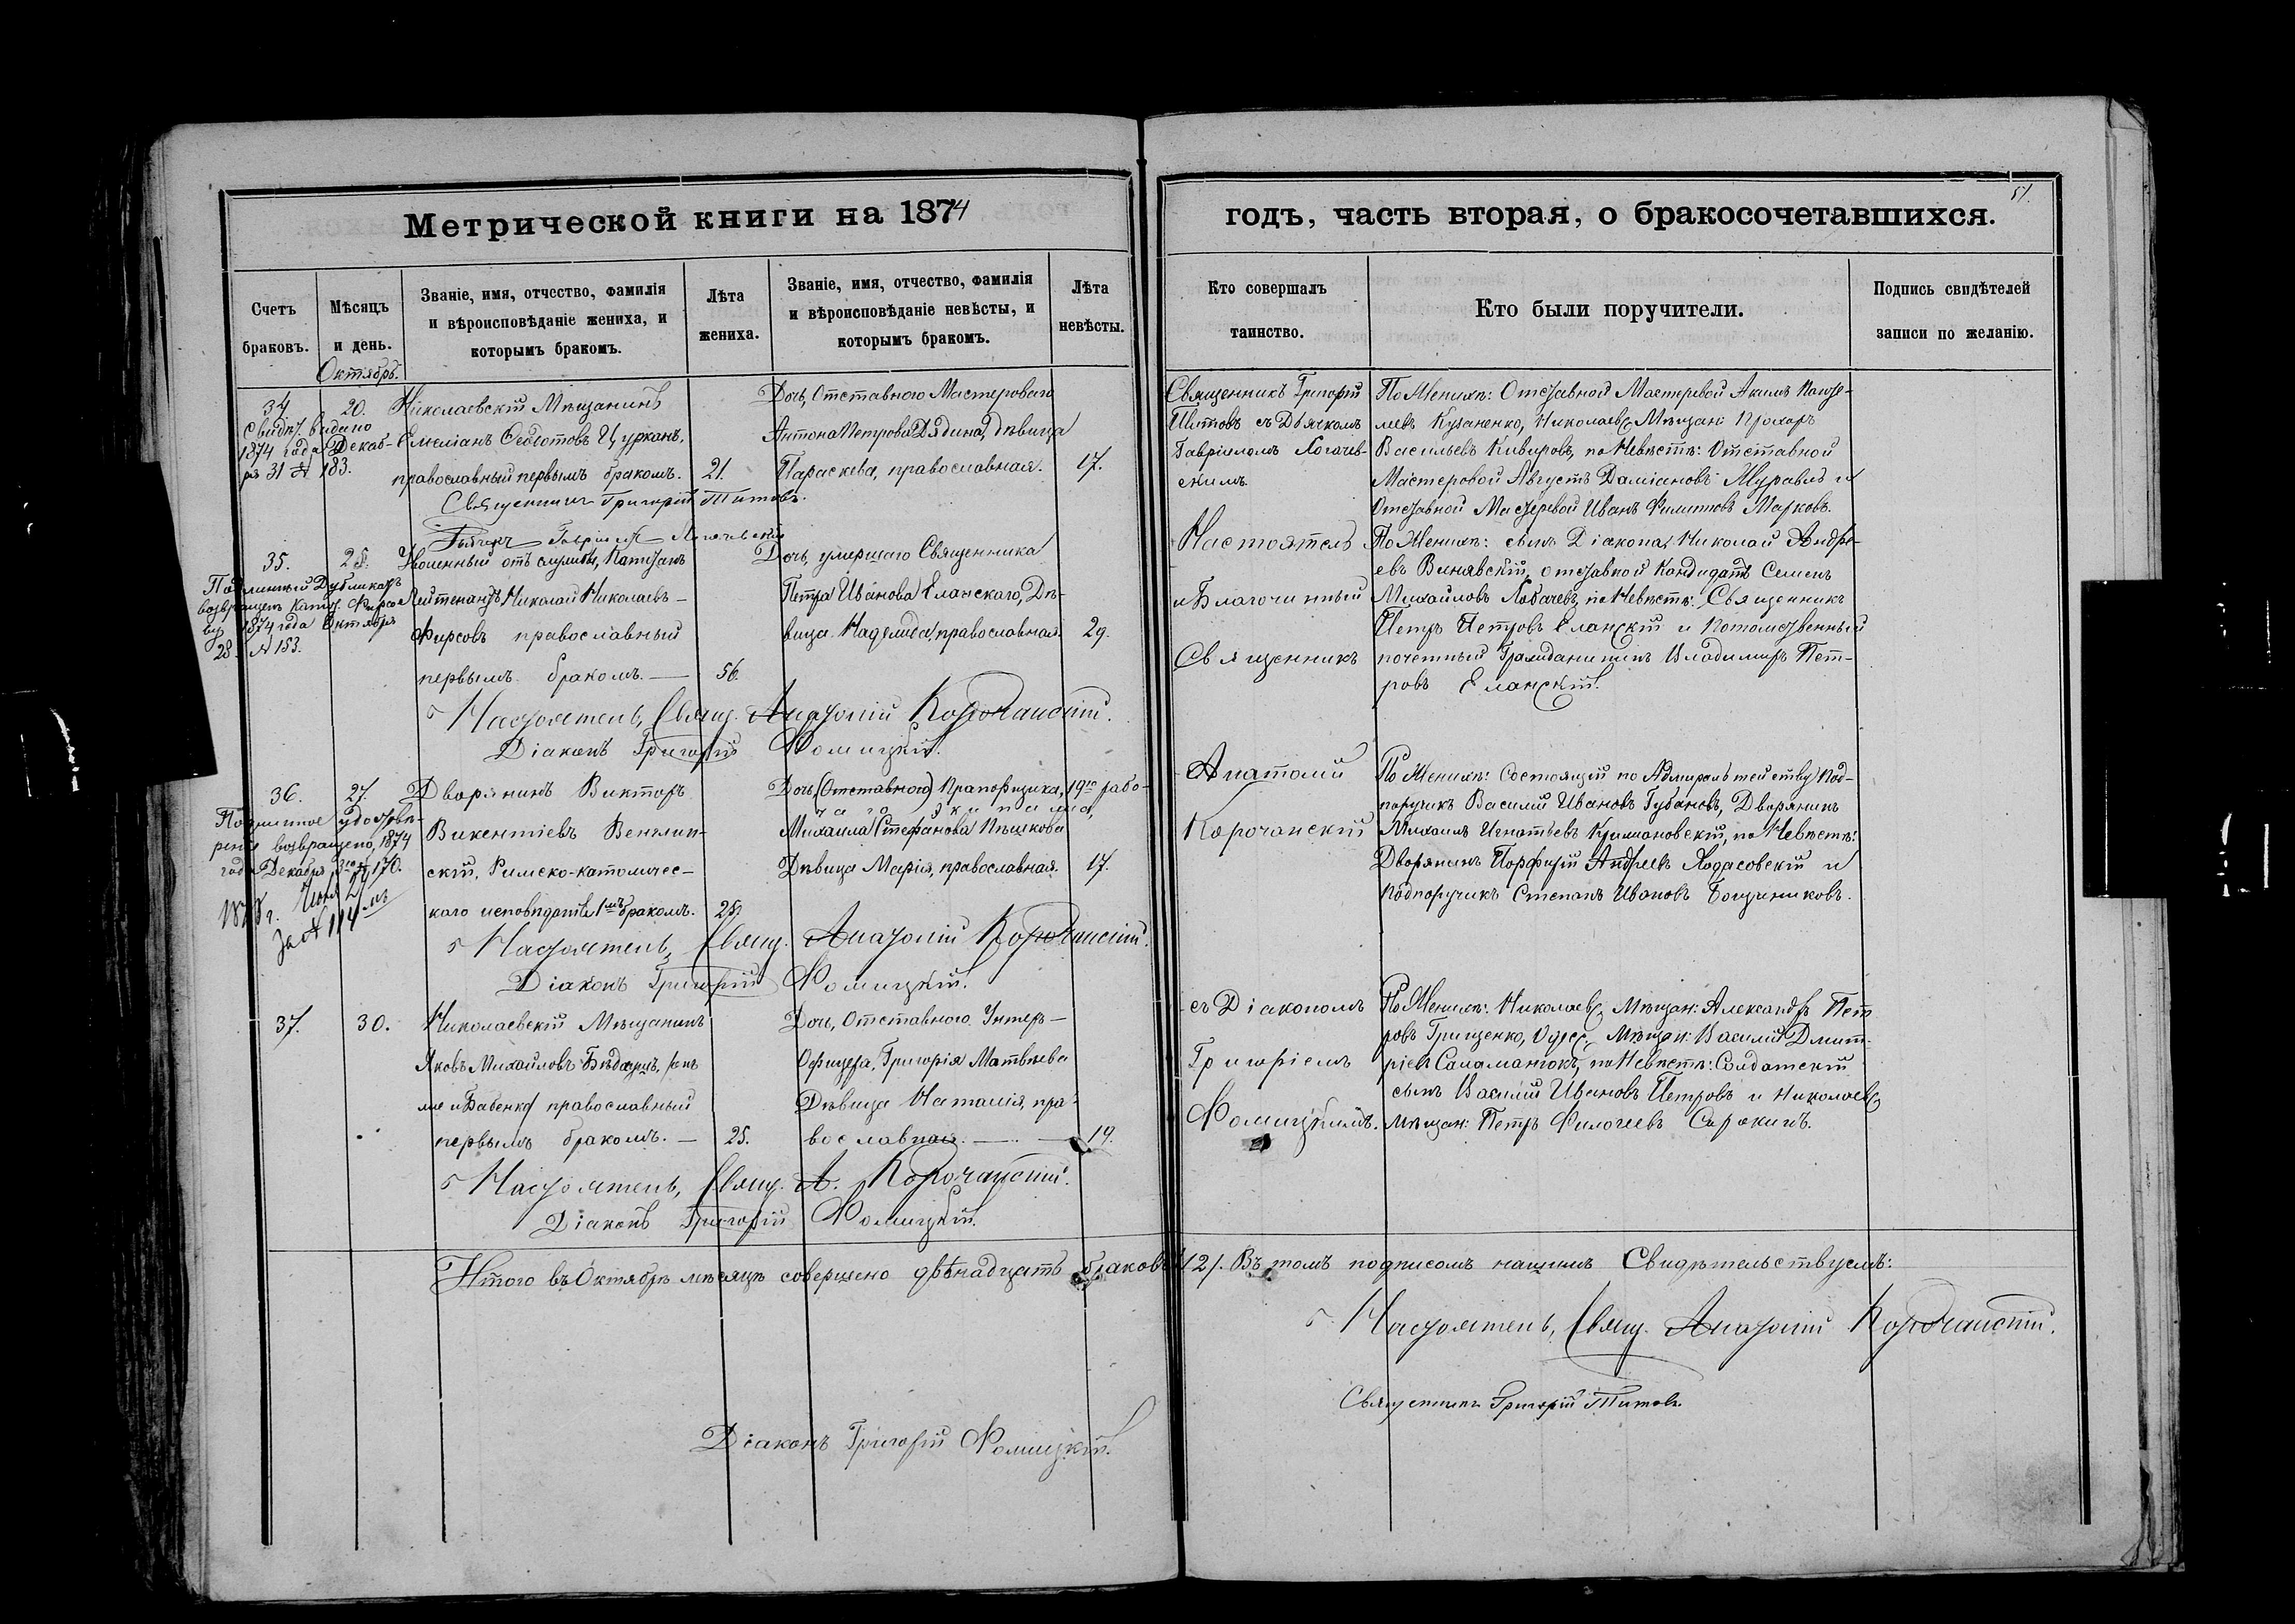 Метрической книги на 1874
Счетъ браковъ.
Мѣсяцъ и день.
Званіе, имя, отчество, фамилія и вѣроисповѣданіе жениха, и которымъ бракомъ.
Лѣта жениха.
Званіе, имя, отчество, фамилія и вѣроисповѣданіе невѣсты, и которымъ бракомъ.
Лѣта невѣсты.
Октябрь.
34
20.
Свидѣт. видано
1874 года Декаб-
ря 31 № 183.
Николаевскій Мѣщанинъ
Емеліанъ Ѳедотовъ Цурканъ,
православный первымъ бракомъ.
21.
Дочь, Отставного Мастероваго
Антона Петрова Дядина, дѣвица
Параскева, православная.
17.
Священникъ Григорій Титовъ.
Гавріилъ
35.
28.
Подлинный Дубликатъ
возвращенъ Капит. Фирсо
ву 1874 года Октября
28. № 153.
Уволенный отъ службы, Капитанъ
Лейтенантъ Николай Николаевъ
Фирсовъ православный
первымъ бракомъ. —
56.
Дочь, умершаго Священника
Петра Иванова Еланскаго, Дѣ-
вица Надежда, православная.
29.
Настоятель, Свящ. Анатолій Корочанскій.
Діаконъ Григорій Фомицкій.
36.
27.
Подлинное удостовѣ-
реніе возвращено, 1874
года Декабря № 170.
за № 114
Дворянинъ Викторъ
Викентіевъ
скій, Римско-католичес-
каго исповѣданія 1мъ бракомъ.
Дочь (Отставного) Прапорщика, 19го рабо-
чаго экипажа,
Михаила Стефанова Пѣшкова
Дѣвица Марія, православная.
17.
Настоятель, Свящ. Анатолій Корочанскій.
Діаконъ Григорій Фомицкій.
37.
30.
Николаевскій Мѣщанинъ
Яковъ Михайловъ
же и Бабенко православный
первымъ бракомъ. —
25.
Дочь, Отставного Унтеръ-
Офицера, Григорія Матвѣева
Дѣвица Наталія, пра-
вославная. —
19.
Настоятель, Свящ. А. Корочанскій.
Діаконъ Григорій Фомицкій.
Итого въ Октябрѣ мѣсяцѣ совершено двѣнадцать браковъ /12/. Въ томъ подписомъ нашимъ Свидѣтельствуемъ:
Діаконъ Григорій Фомицкій.
51.
годъ, часть вторая, о бракосочетавшихся.
Кто совершалъ таинство.
Кто были поручители.
Подпись свидѣтелей записи по желанію.
Священникъ Григорій
Титовъ съ Дьячкомъ
Гавріиломъ Логачев-
скимъ.
По Женихѣ: Отставной Мастеровой Акимъ
левъ Кузаненко, Николаевс. Мѣщан: Прохоръ
Васильевъ Кивировъ, по Невѣстѣ: Отставной
Мастеровой Августъ Даміановъ Журавль и
Отставной Мастеровой Иванъ Филиповъ Марковъ.
Настоятель
и Благочинный
Священникъ
По Женихѣ: сынъ Діакона, Николай Андре-
евъ Винявскій, отставной Кандидатъ Семенъ
Михайловъ Лобачевъ, по Невѣстѣ: Священникъ
Петръ Петровъ Еланскій и Потомственный
почетный Гражданинъ Владимиръ Пет-
ровъ Еланскій.
Анатолій
Корочанскій
По Женихѣ: Состоящій по Адмиралтейству Под-
поручикъ Василій Ивановъ Губановъ, Дворянинъ
Михаилъ Игнатьевъ Крижановскій, по Невѣстѣ:
Дворянинъ Порфирій Андреевъ Ходасовскій и
Подпоручикъ Степанъ Ивановъ
съ Діакономъ
Григоріемъ
Фомицкимъ.
По Женихѣ: Николаевс. Мѣщан: Александръ Пет
ровъ Грищенко, Одесс. Мѣщан: Василій Дмит-
ріевъ по Невѣстѣ: Солдатскій
сынъ Василій Ивановъ Петровъ и Николаевс.
Мѣщан: Петръ Сорокинъ.
Настоятель, Свящ. Анатолій Корочанскій.
Священникъ Григорій Титовъ